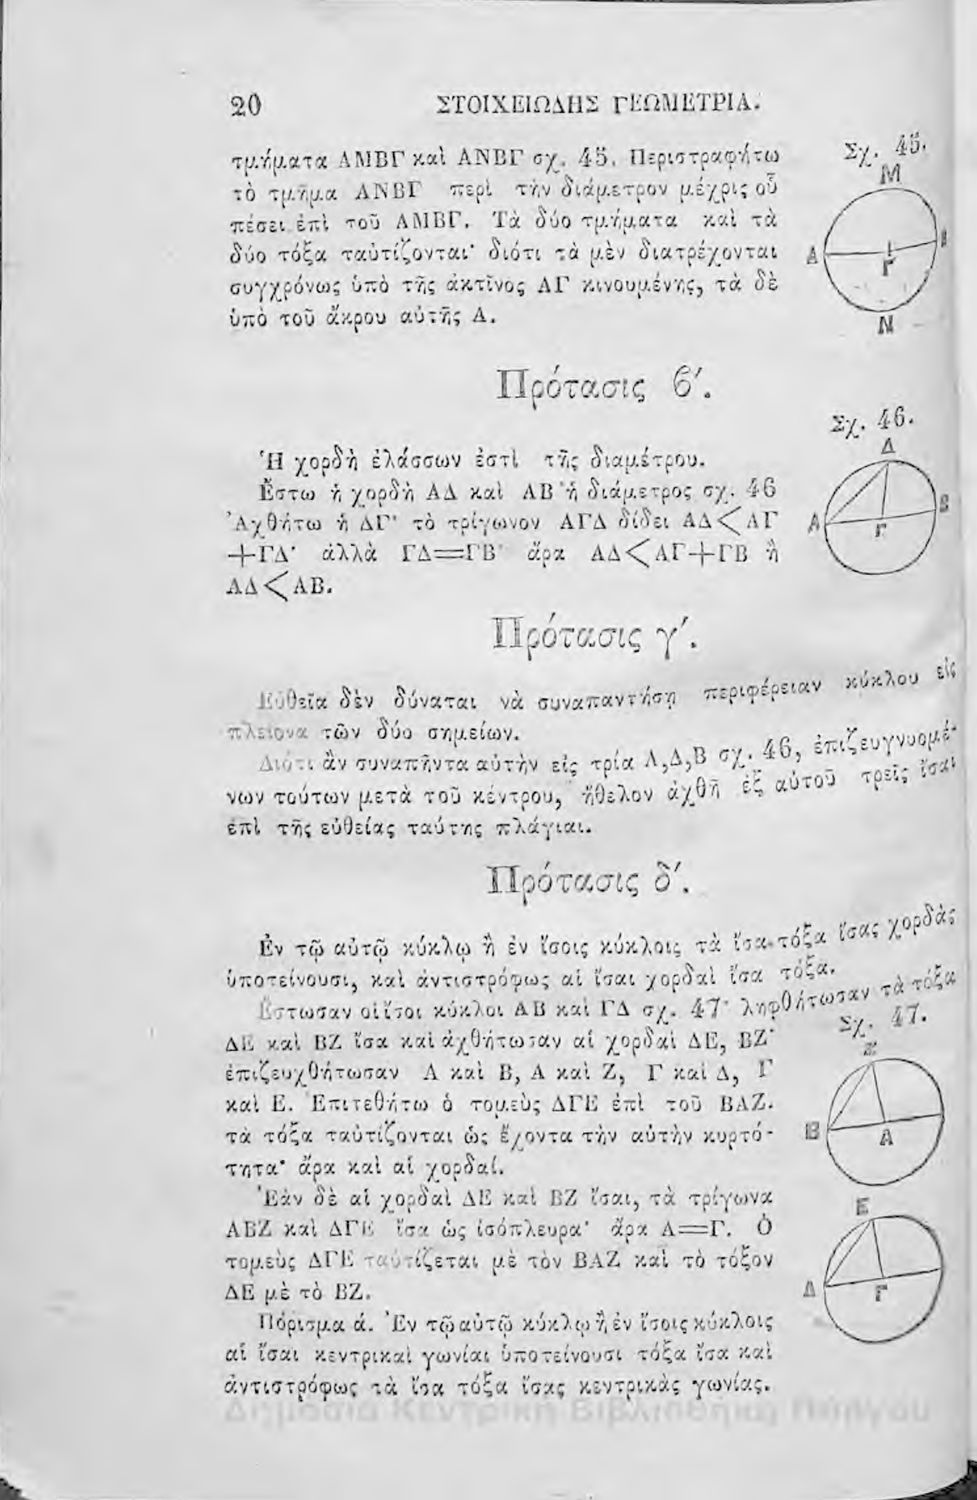 20 ΣΤΟΙΧΕΙΩΔΗΣ ΓΕΩΜΕΤΡΙΑ.
τμήματα ΑΜΒΓ καὶ ΑΝΒΓ σχ. 45. Περιστραφήτω
τὸ τμῆμα ΑΝΒΓ περὶ τὴν διάμετρον μέχρις οὗ
πέσει ἐπὶ τοῦ ΑΜΒΓ. Τὰ δύο τμήματα καὶ τὰ
δύο τόξα ταὐτίζονται· διότι τὰ μὲν διατρέχονται
συγχρόνως ὑπὸ τῆς ἀκτῖνος ΑΓ κινουμένης, τὰ δὲ
ὑπὸ τοῦ ἄκρου αὐτῆς Α.
Σχ. 45.
Μ
Α
Γ
Β
Ν
Πρότασις β´.
Ἡ χορδὴ ἐλάσσων ἐστὶ τῆς διαμέτρου.
Ἔστω ἡ χορδὴ ΑΔ καὶ ΑΒ ἡ διάμετρος σχ. 46
Ἀχθήτω ἡ ΔΓ· τὸ τρίγωνον ΑΓΔ δίδει ΑΔ<ΑΓ
+ΓΔ· ἀλλὰ ΓΔ=ΓΒ· ἄρα ΑΔ<ΑΓ+ΓΒ ἢ
ΑΔ<ΑΒ.
Σχ. 46.
Δ
Α
Γ
Β
Πρότασις γ´.
Εὐθεῖα δὲν δύναται νὰ συναπαντήσῃ περιφέρειαν κύκλου εἰς
πλείονα τῶν δύο σημείων.
Διότι ἂν συναπῆντα αὐτὴν εἰς τρία Α,Δ,Β σχ. 46, ἐπιζευγνυομέ-
νων τούτων μετὰ τοῦ κέντρου, ἤθελον ἀχθῆ ἐξ αὐτοῦ τρεῖς ἴσαι
ἐπὶ τῆς εὐθείας ταύτης πλάγιαι.
Πρότασις δ´.
Ἐν τῷ αὐτῷ κύκλῳ ἢ ἐν ἴσοις κύκλοις τὰ ἴσα τόξα ἴσας χορδὰς
ὑποτείνουσι, καὶ ἀντιστρόφως αἱ ἴσαι χορδαὶ ἴσα τόξα.
Ἔστωσαν οἱ ἴσοι κύκλοι ΑΒ καὶ ΓΔ σχ. 47· ληφθήτωσαν τὰ τόξα
ΔΕ καὶ ΒΖ ἴσα καὶ ἀχθήτωσαν αἱ χορδαὶ ΔΕ, ΒΖ·
ἐπιζευχθήτωσαν Α καὶ Β, Α καὶ Ζ, Γ καὶ Δ, Γ
καὶ Ε. Ἐπιτεθήτω ὁ τομεὺς ΔΓΕ ἐπὶ τοῦ ΒΑΖ.
τὰ τόξα ταὐτίζονται ὡς ἔχοντα τὴν αὐτὴν κυρτό-
τητα· ἄρα καὶ αἱ χορδαί.
Ἐὰν δὲ αἱ χορδαὶ ΔΕ καὶ ΒΖ ἴσαι, τὰ τρίγωνα
ΑΒΖ καὶ ΔΓΕ ἴσα ὡς ἰσόπλευρα· ἄρα Α=Γ. Ὁ
τομεὺς ΔΓΕ ταὐτίζεται μὲ τὸν ΒΑΖ καὶ τὸ τόξον
ΔΕ μὲ τὸ ΒΖ.
Σχ. 47.
Ζ
Β
Α
Ε
Δ
Γ
Πόρισμα ά. Ἐν τῷ αὐτῷ κύκλῳ ἢ ἐν ἴσοις κύκλοις
αἱ ἴσαι κεντρικαὶ γωνίαι ὑποτείνουσι τόξα ἴσα καὶ
ἀντιστρόφως τὰ ἴσα τόξα ἴσας κεντρικὰς γωνίας.
Δημόσια Κεντρική Βιβλιοθήκη Πύργου